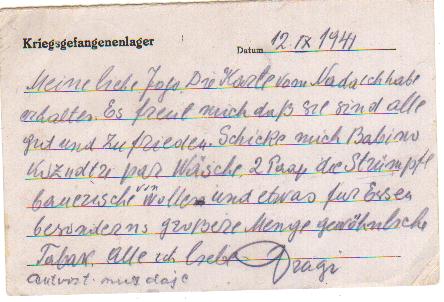 Kriegsgefangenenlager
Datum 12. IX 1941
Meine liebe Jogo Die Karte vom Nada ich habe
erhalten. Es freut mich daß sie sind alle
gut und zufrieden. Schicke mich Babino
par Wäsche, 2 Paar die Strümpfe
bauerische von Wollen und etwas für Essen
besonderns großere Menge gewöhnlische
Tabak. Alle ich liebe Dragi
Antvort nur daic